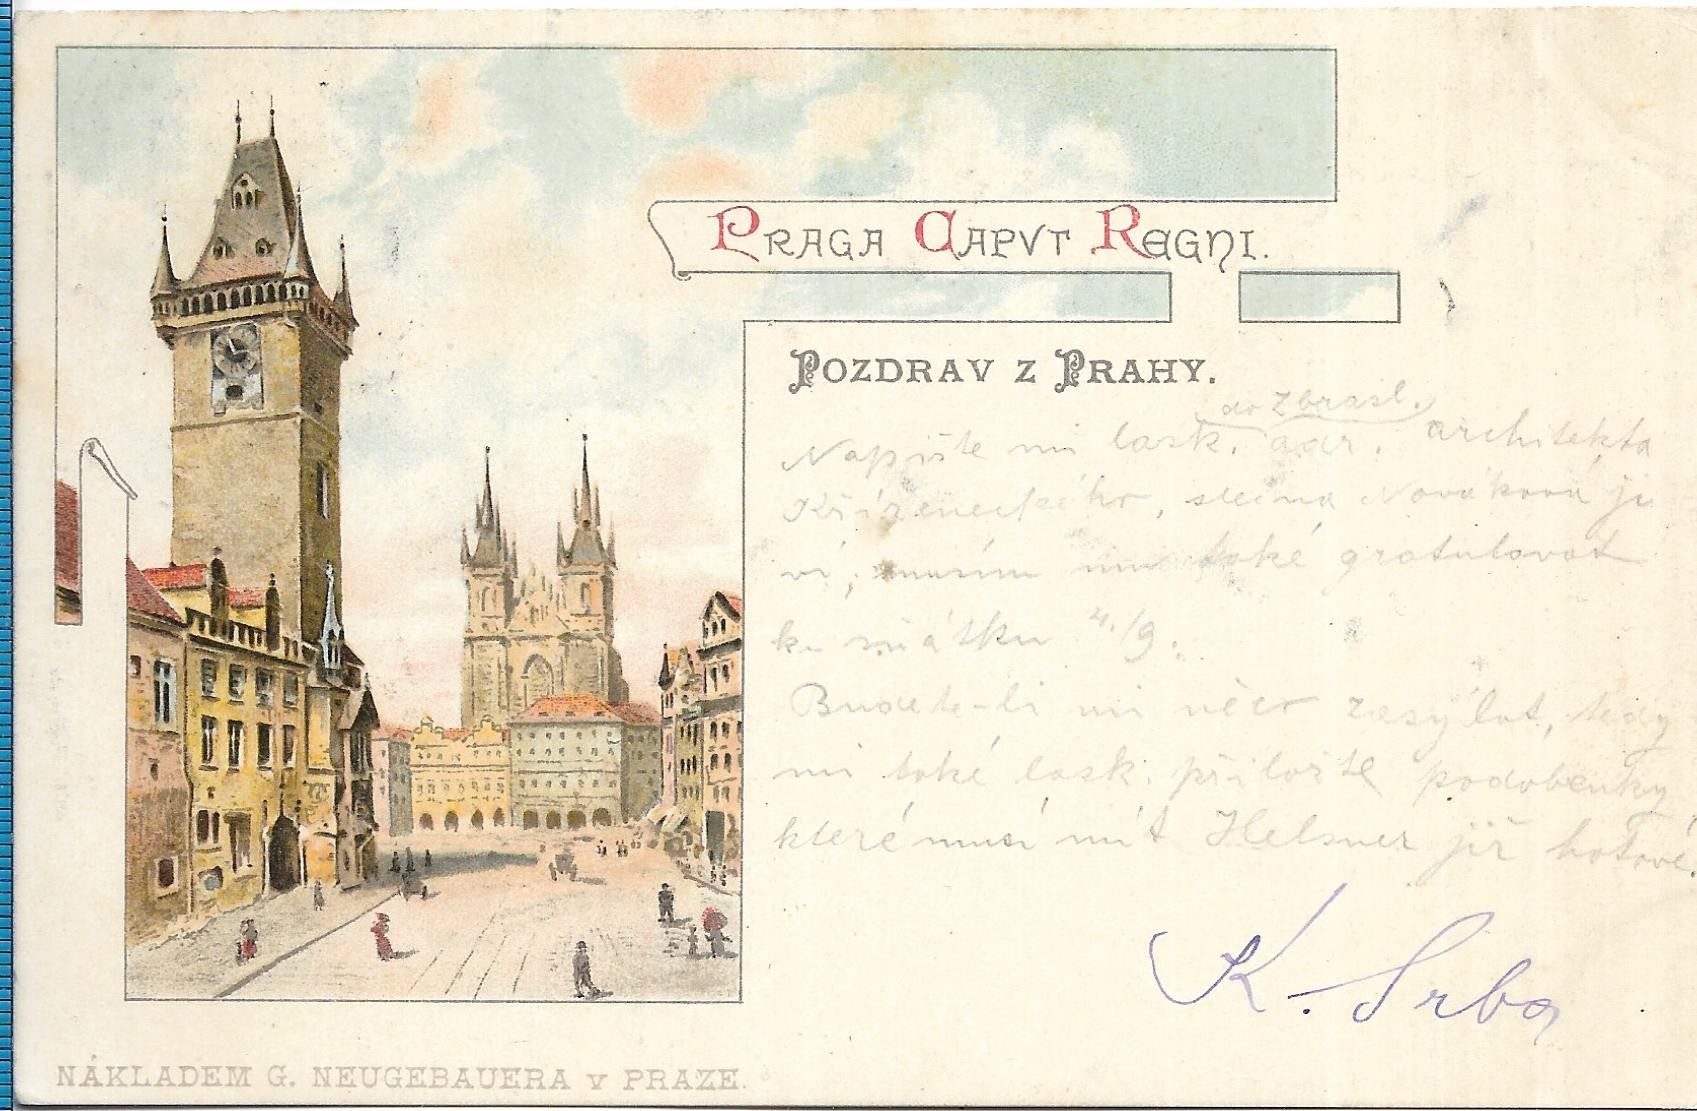 PRAGA CAPVT REGNI.
POZDRAV Z PRAHY.
do Zbrasl.
Napište mi lask. adr. architekta
Kříženeckého, slečna Nováková ji
ví, musím mu také gratulovat
ke sňatku 4./9.
Budete-li mi něco zasýlat, tedy
mi také lask. přiložte podobenky
které musí mít Helsner již hotové.
K. Srba
NÁKLADEM G. NEUGEBAUERA V PRAZE.